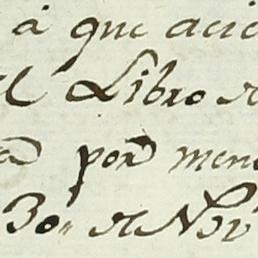 á que acie
el Libro de
a por men
30,, de Nov